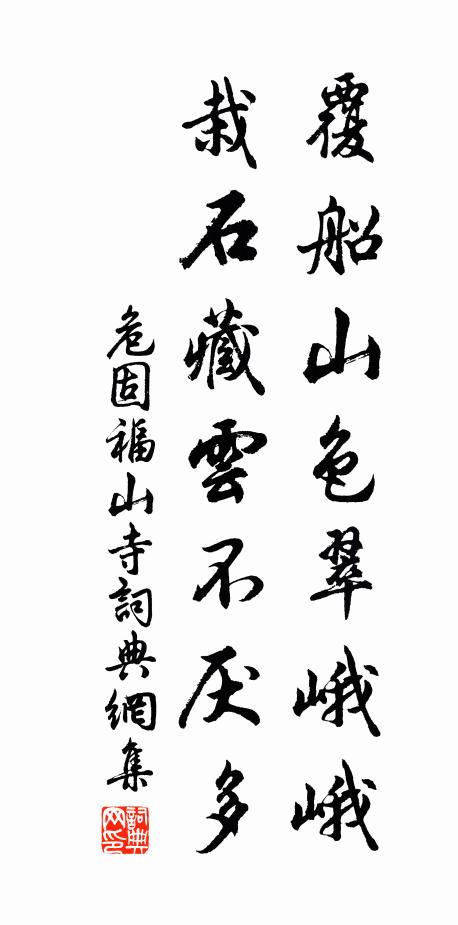 覆船山色翠峨峨
栽石藏雲不厌多
危固福山寺詞典網集
詞典网印